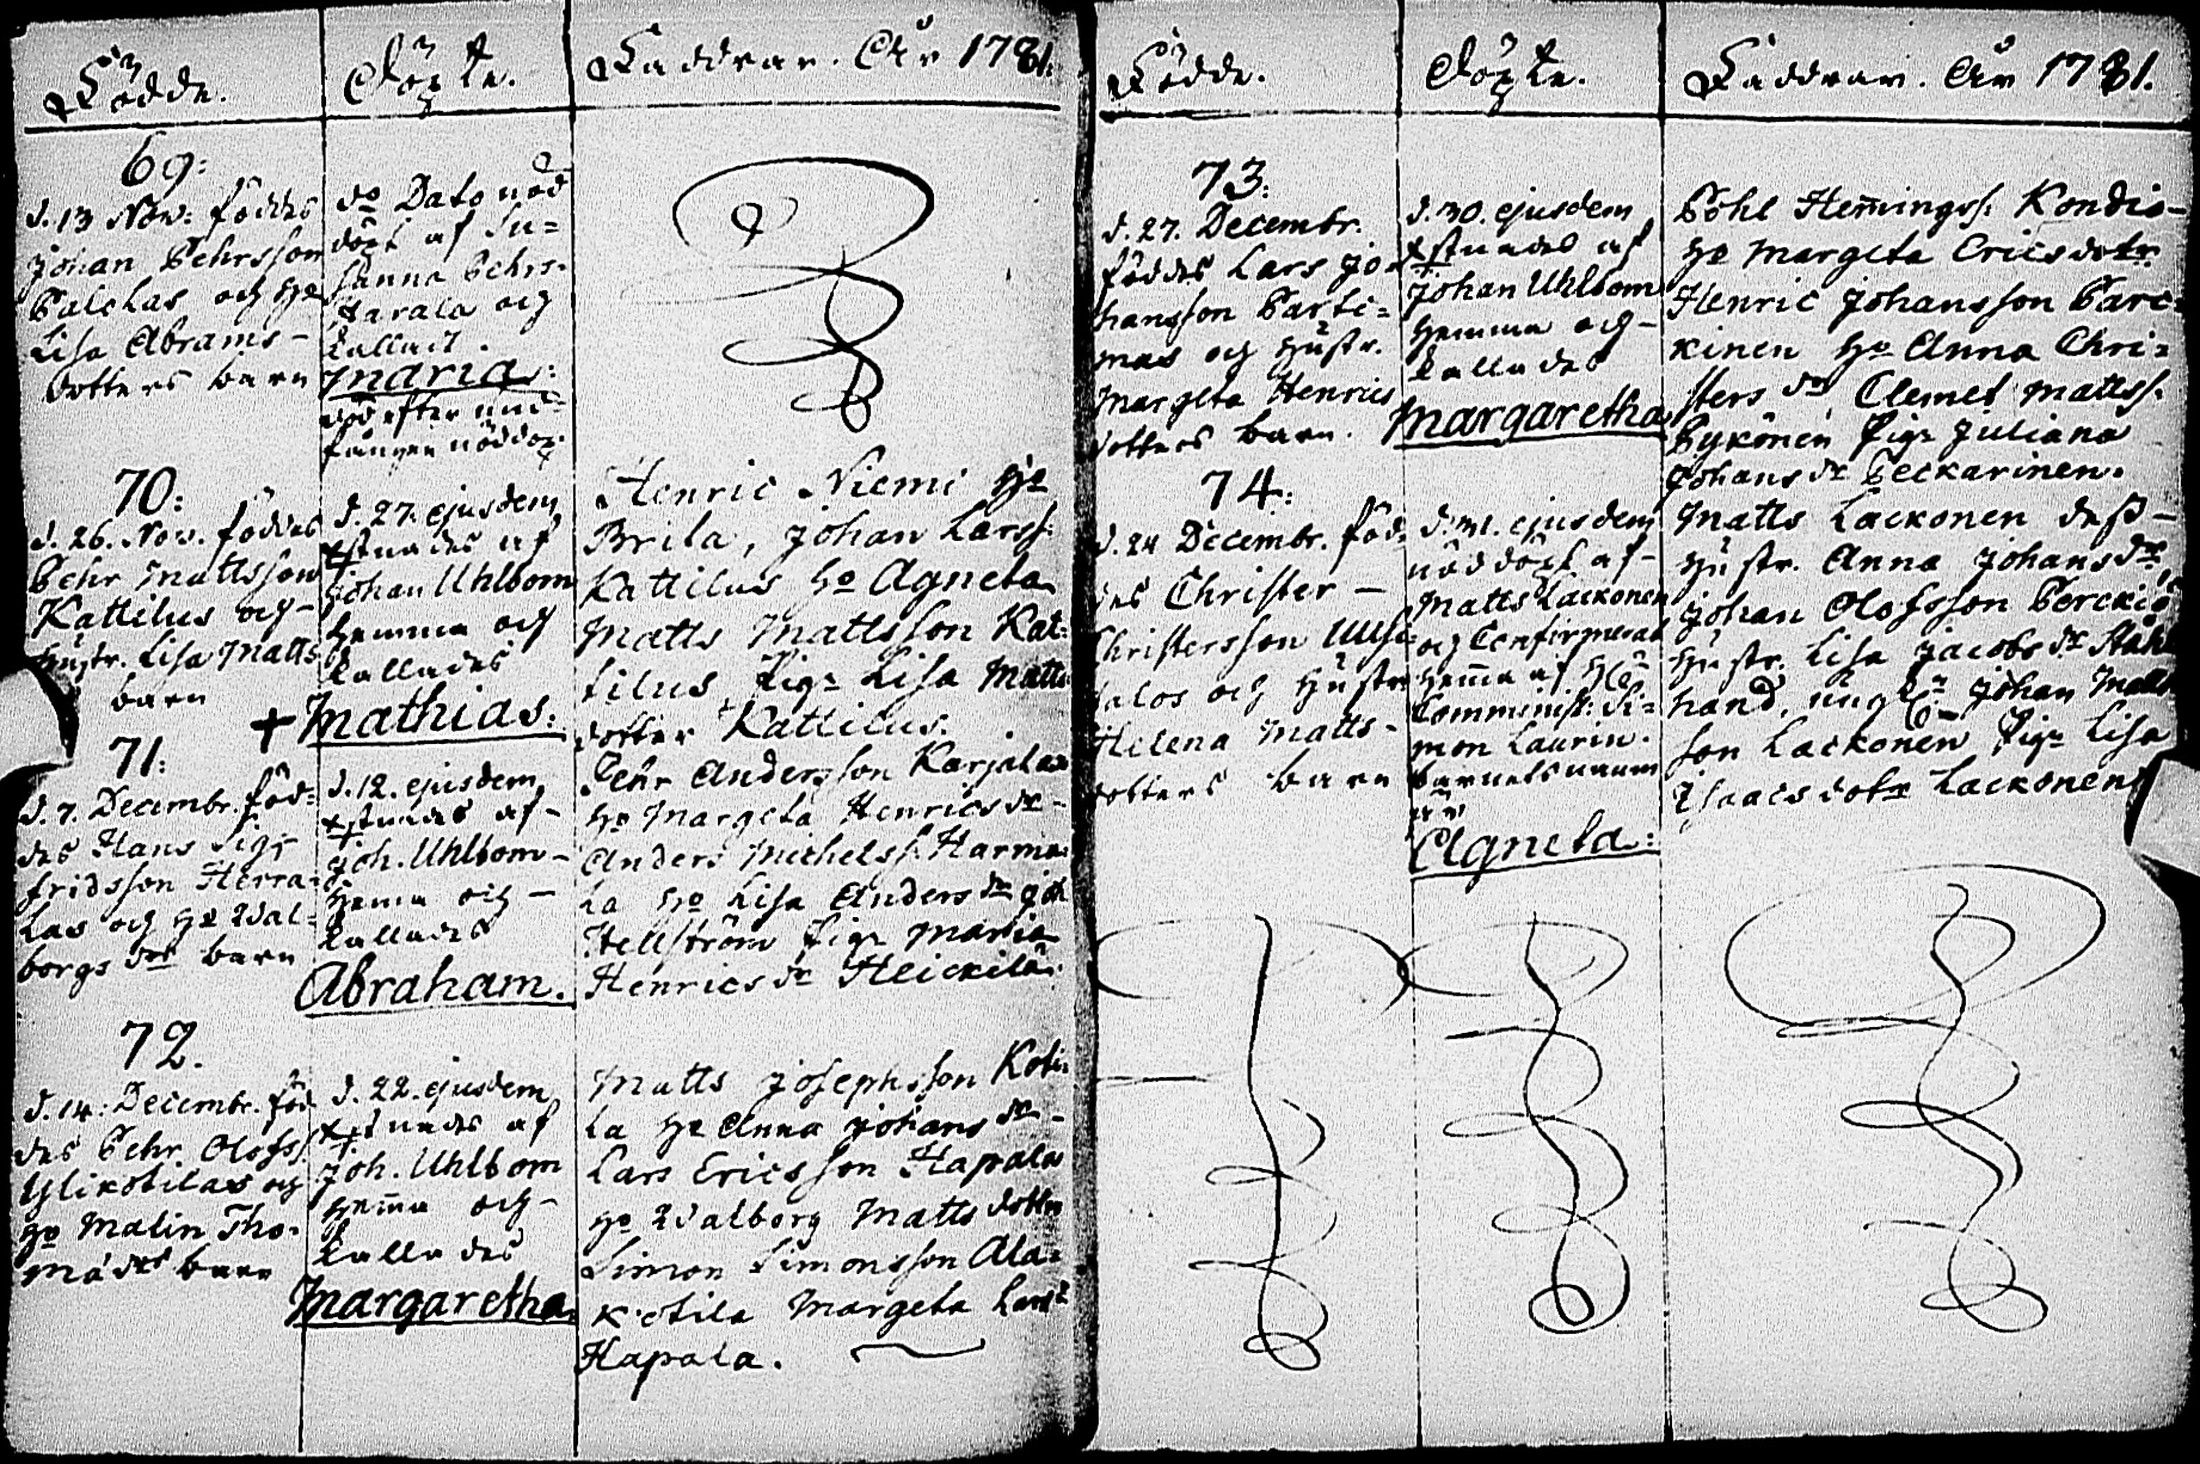 Födde.
Döpte.
Faddrar. År 1781.
69:
d. 13 Nov: föddes
Johan Pehrsson
Palelas och ho
Lisa Abrams-
dotters barn
do Dato nöd
döpt af Su=
sanna Pehrs.
Harala och
kallad.
Maria:
död efter und=
fången nöddop.
70:
d. 26. Nov. föddes
Pehr Mattsson
Kattilus och-
hustr. Lisa Matts
barn
d. 27. ejusdem
xstnades af
Johan Uhlbom
hemma och
kallades
+ Mathias:
Henric Niemi ho
Brita, Johan Larss:
Kattilus ho Agneta
Matts Mattsson Kat=
tilus, Pig: Lisa Matts
dotter Kattilus.
71:
d. 7. Decembr. föd=
des Hans Sig=
fridsson Herra=
las och ho Wal=
borgs drs barn
d. 12. ejusdem
xstnades af-
Joh. Uhlbom-
hema och -
kallades
Abraham.
Pehr Andersson Karjalan
ho Margeta Henricsdr-
Anders Michelss: Harma=
la ho Lisa Andersdr Joh
Hellström Pig: Maria
Henricsdr Heickilä.
72.
d. 14: Decembr. föd
des Pehr Olofss:
Ylikotilas och
ho Malin Tho=
mädrs barn
d. 22. ejusdem
xstnades af
Joh. Uhlbom
hema och-
kallades
Margaretha.
Matts Josephsson Koti=
la ho Anna Johansdr-
Lars Ericsson Hapala
ho Walborg Matts dotter
Simon Simonsson Ala=
kotila Margeta Larsdr
Hapala.
Födde.
Döpte.
Faddrar. År 1781.
73:
d. 27. Decembr.
föddes Lars Jo=
hansson Parti=
mas och hustr.
Margeta Henrics
dotters barn.
d. 30. ejusdem
xstnades af
Johan Uhlbom
hemma och-
kallades
Margaretha
Påhl Hemingss: Kondio-
ho Margeta Ericsdotr.
Henric Johansson Parc=
kinen ho Anna Chri=
stersdr, Clemet Mattss.
Pykönen Pig: Juliana
Johansdr Peckarinen.
74:
d. 24 Decembr. föd=
des Christer -
Christersson Uusi
talos och Hustr
Helena Matts-
dotters barn
d. 31. ejusdem
nöddöpt af-
Matts Lackonen
och Confirmerat
hema af
Comminist: Si=
mon Laurin.
barnets namn
är
Agneta:
Matts Lackonen dess-
hustr. Anna Johansdr,
Johan Olofsson Perckiö
hustr. Lisa Jacobsdr Ståhl
hand, ungkn Johan Matts
son Lackonen Pig: Lisa
Isaacsdotr Lackonen